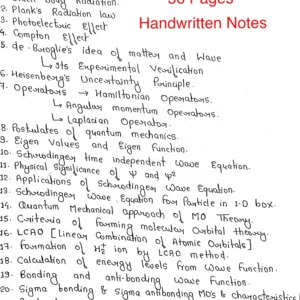 Body Radiation.
2. Plank's Radiation law
3. Photoelectric Effect
4. Compton Effect
5. de-Broglie's idea of matter and Wave
↳ Its Experimental Verification
6. Heisenberg's Uncertainty Principle.
7. Operators → Hamiltonian Operators.
↳ Angular momentum Operators.
↳ Laplacian Operator.
8. Postulates of quantum mechanics.
9. Eigen Values and Eigen function.
10. Schrodinger time independent Wave Equation.
11. Physical Significance of Ψ and Ψ²
12. Applications of Schrodinger Wave Equation.
13. Schrodinger Wave Equation for Particle in 1-D box.
14. Quantum Mechanical approach of MO Theory.
15. Criteria of forming molecular Orbital theory.
16. LCAO [Linear Combination of Atomic Orbitals]
17. Formation of H₂⁺ ion by LCAO method.
18. Calculation of energy levels from Wave function.
19. Bonding and anti-bonding Wave function.
20. Sigma bonding & Sigma antibonding MO's & characteristics
Pages
Handwritten Notes